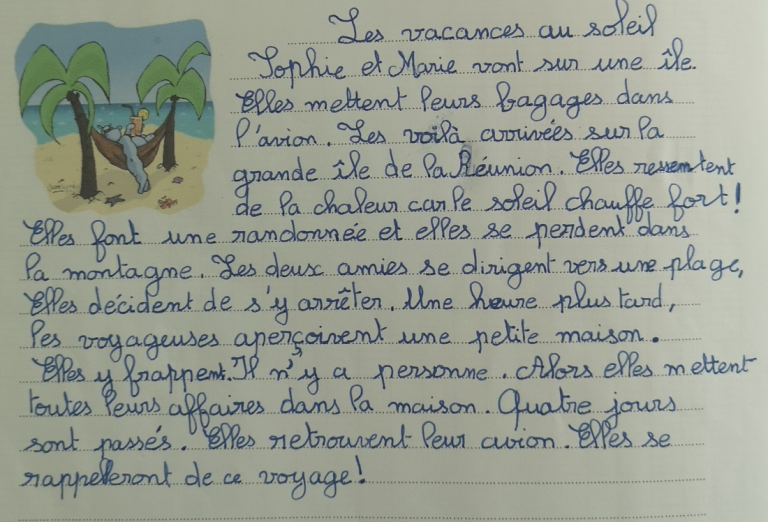 Les vacances au soleil
Sophie et Marie vont sur une île.
Elles mettent leurs bagages dans
l'avion. Les voilà arrivées sur la
grande île de la Réunion. Elles ressentent
de la chaleur car le soleil chauffe fort!
Elles font une randonnée et elles se perdent dans
la montagne. Les deux amies se dirigent vers une plage,
Elles décident de s'y arrêter. Une heure plus tard,
les voyageuses aperçoivent une petite maison.
Elles y frappent. Il n'y a personne. Alors elles mettent
toutes leurs affaires dans la maison. Quatre jours
sont passés. Elles retrouvent leur avion. Elles se
rappelleront de ce voyage!